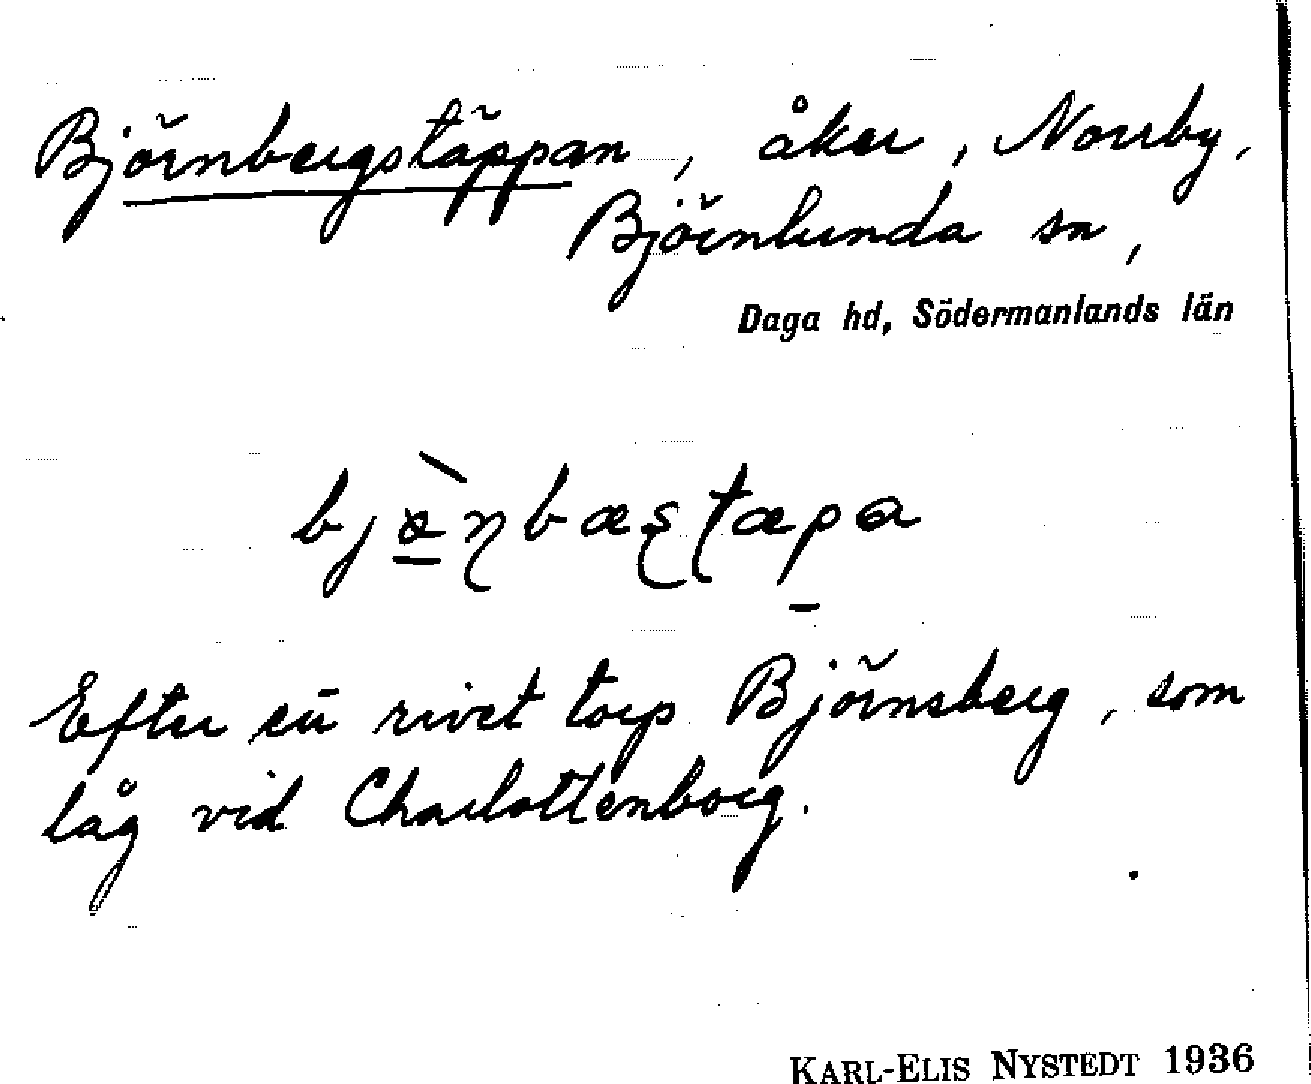 Björnbergstäppan, åker, Norrby,
Björnlunda sn,
Daga hd, Södermanlands län
Efter ett rivet torp Björnsberg, som
låg vid Charlottenborg.
KARL-ELIS NYSTEDT 1936